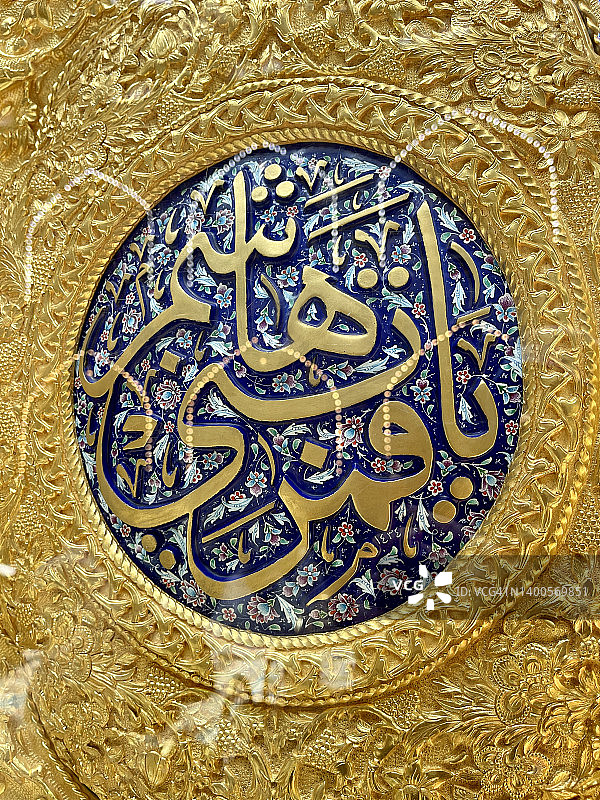 يا قمر بني هاشم
VCG
ID: VCG41N1400569851